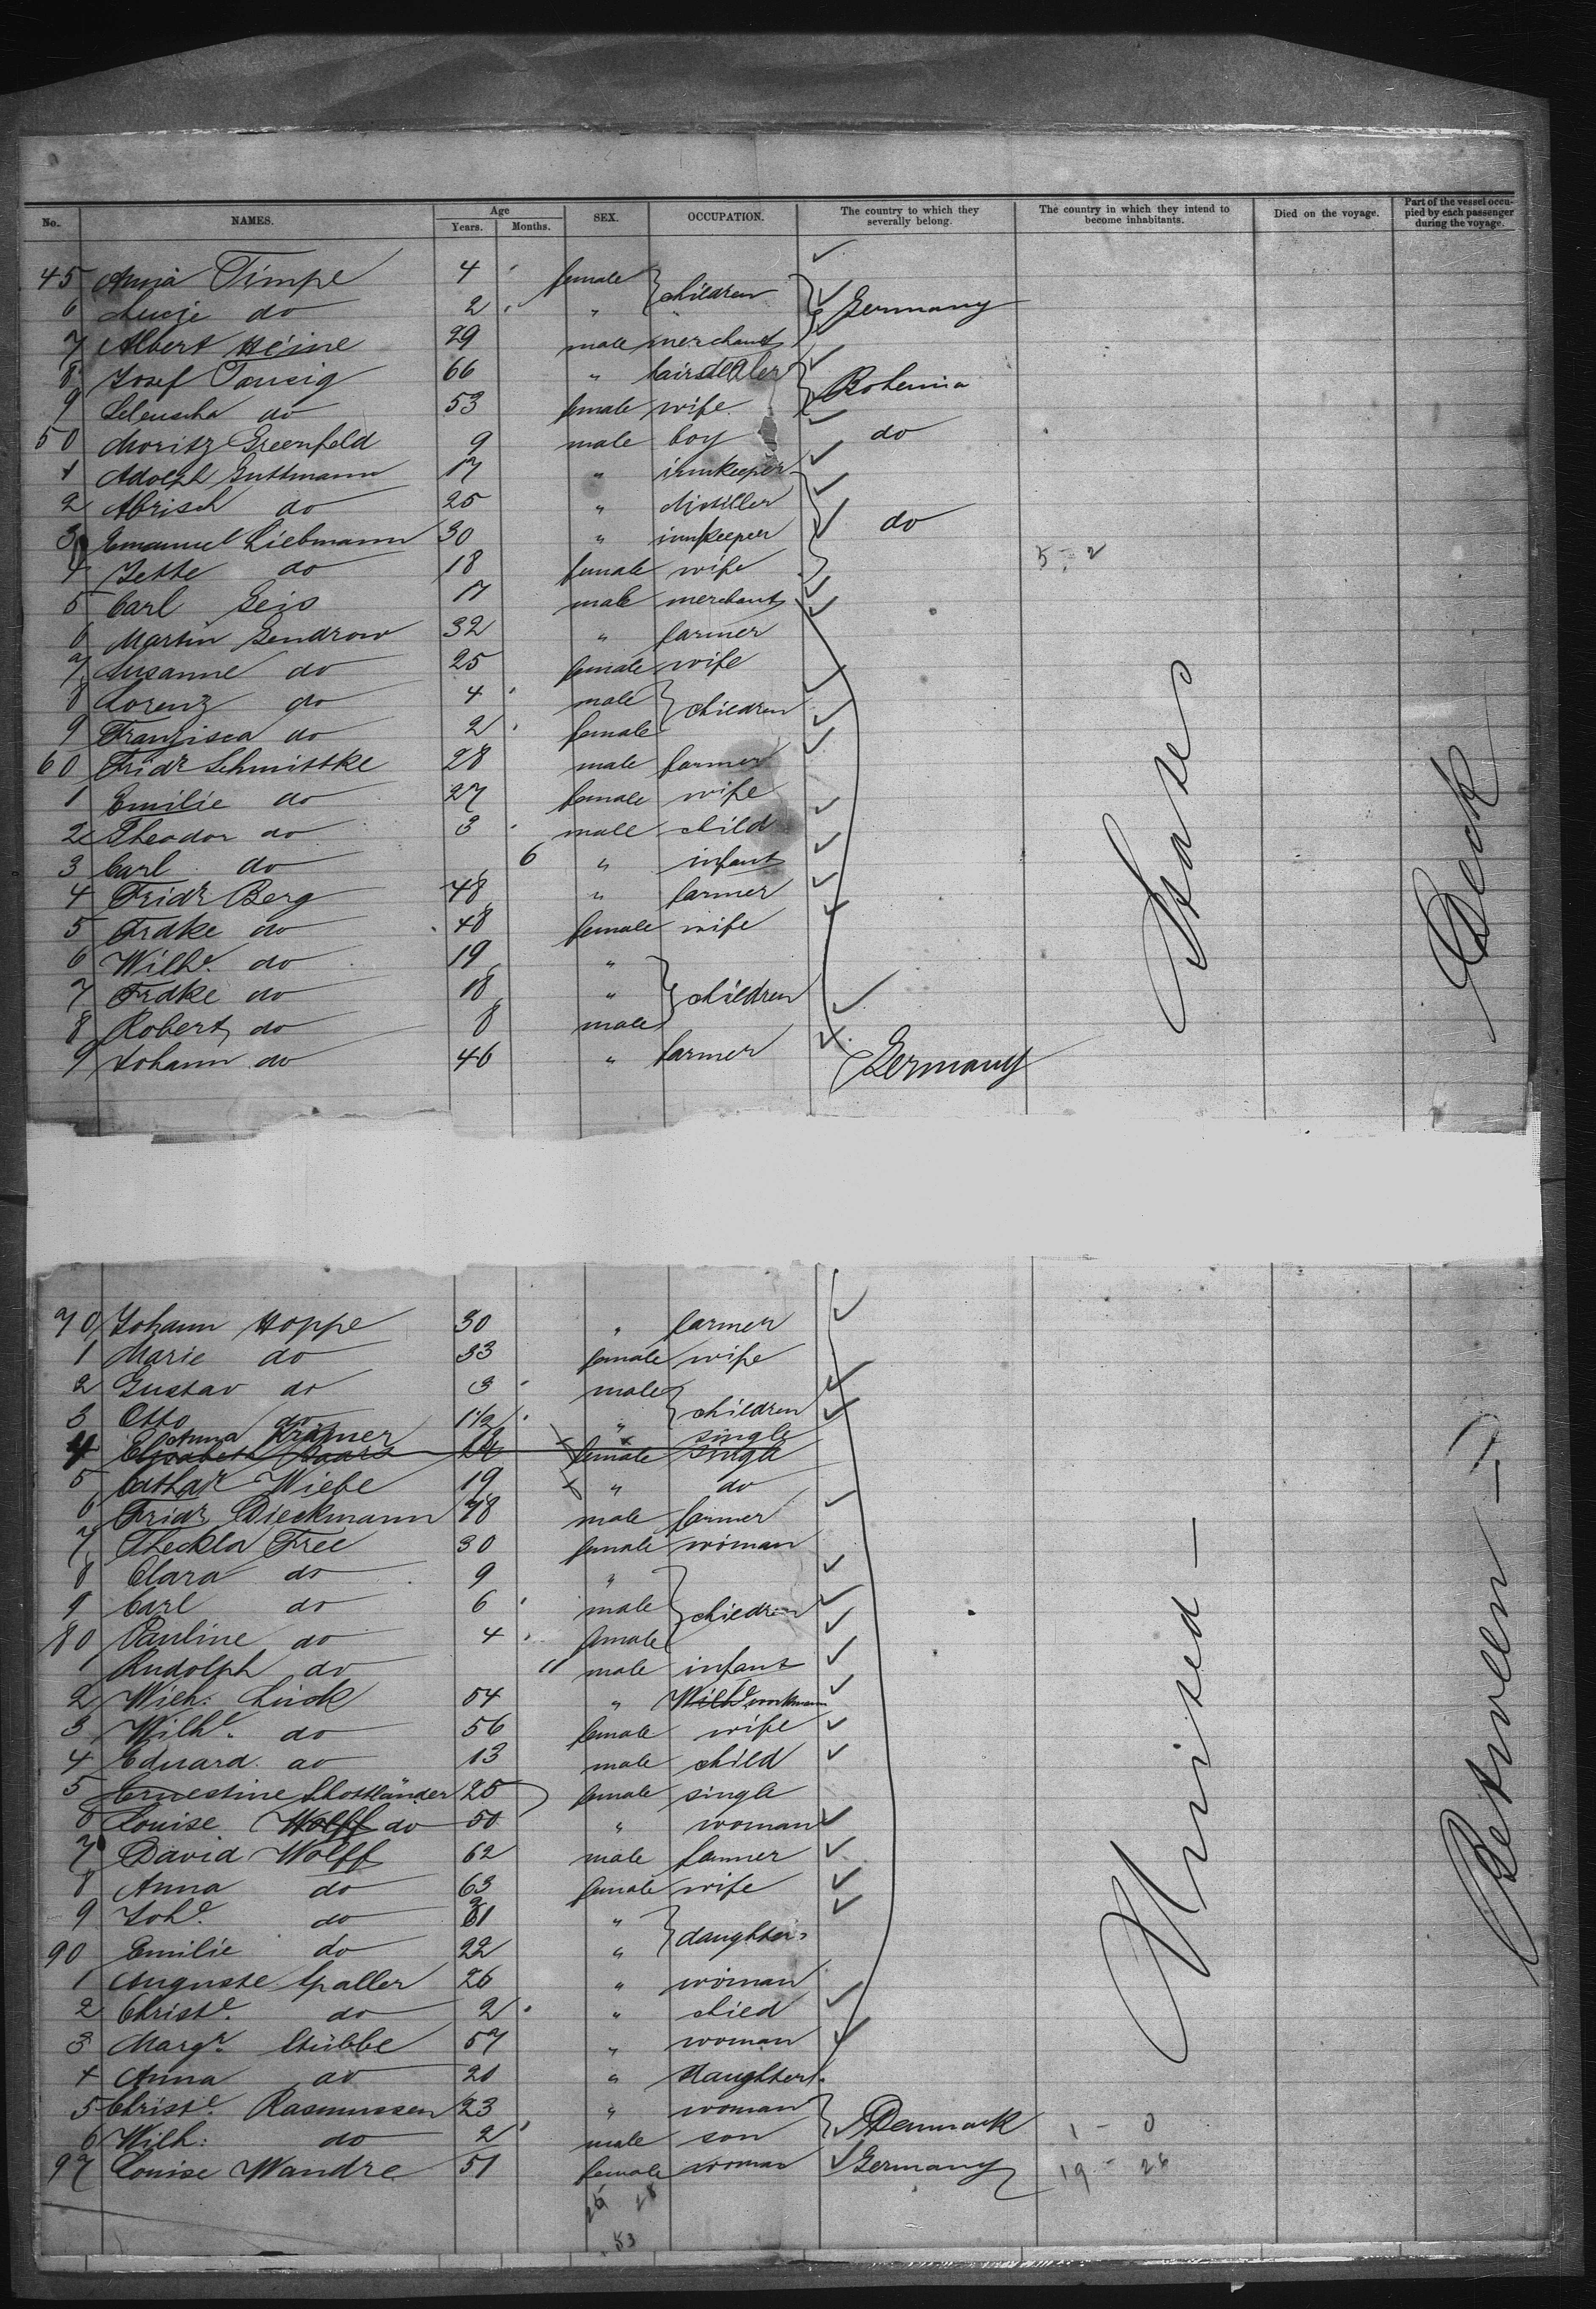 No. NAMES. Age Years. Months. SEX. OCCUPATION. The country to which they severally belong. The country in which they intend to become inhabitants. Died on the voyage. Part of the vessel occupied by each passenger during the voyage.
45 Anna Timpe 4 female children
6 Lucie do 2 " Germany
7 Albert Heine 29 male merchant
8 Josef Tausig 66 " hairdealer Bohemia
9 do 53 female wife
50 Moritz Greenfeld 9 male boy do
1 Adolph Guttmann 17 " innkeeper
2 Abrisch do 25 " distiller
3 Emanuel Liebmann 30 " innkeeper do
4 Jette do 18 female wife 5 - 2
5 Carl Geis 17 male merchant
6 Martin Gendrow 32 " farmer
7 Susanne do 25 female wife
8 Lorenz do 4 male children
9 Franzisca do 2 female
60 Fridr Schmittke 28 male farmer
1 Emilie do 27 female wife
2 Theodor do 3 male child
3 Carl do 6 " infant
4 Fridr Berg 48 " farmer
5 Frdke do 48 female wife
6 Wilhe. do 19 "
7 Frdke do 18 " children
8 Robert do 8 male
9 Johann do 46 " farmer Germany
70 Johann Hoppe 30 " farmer
1 Marie do 33 female wife
2 Gustav do 3 male
3 Otto do 1 1/2 " children
Anna Krämer single
4 Elisabeth female single
5 Cathar Wiebe 19 " do
6 Fridr Dieckmann 78 male farmer
7 Theckla Free 30 female woman
8 Clara do 9 "
9 Carl do 6 male children
80 Pauline do 4 female
1 Rudolph do 11 male infant
2 Wilh: Lück 54 " Wilhe workman
3 Wilhe. do 56 female wife
4 Eduard do 13 male child
5 Ernestine Schottländer 25 female single
6 Louise Wolff do 50 " woman
7 David Wolff 62 male farmer
8 Anna do 63 female wife
9 Johe. do 31 "
90 Emilie do 22 " daughters
1 Auguste Spaller 26 " woman
2 Christe. do 2 " child
3 Margr. Stübbe 57 " woman
4 Anna do 20 " daughter
5 Christe. Rasmussen 23 " woman Denmark
6 Wilh: do 2 male son 1 - 0
97 Louise Wandre 51 female woman Germany 19 - 26
28
53
United - States
Between - Deck